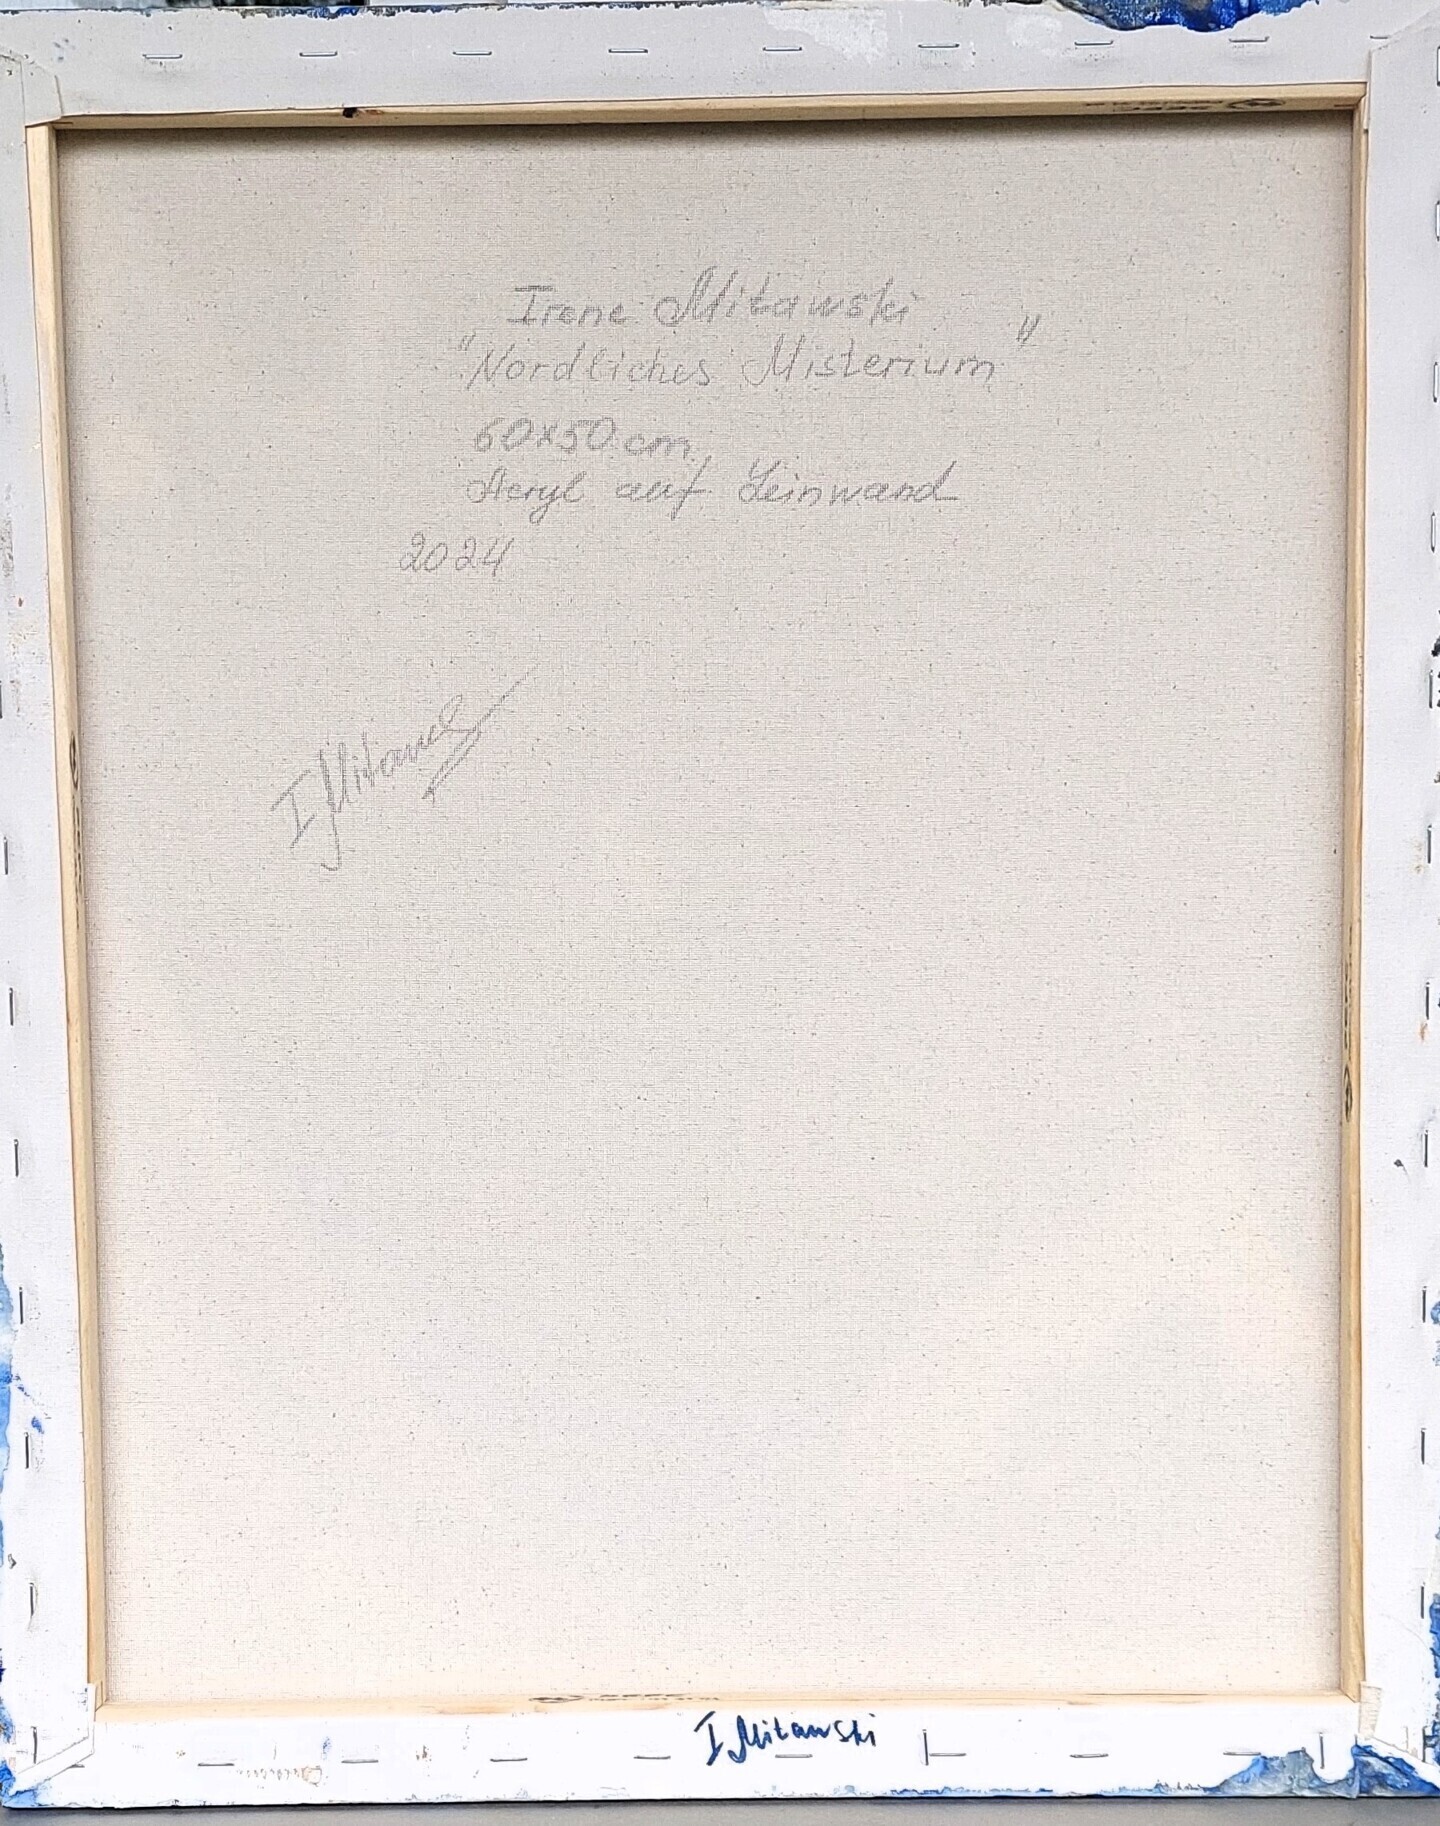 Irene Mitawski
"Nordliches Misterium"
60x50 cm,
Acryl auf Leinwand
2024
I Mitawski